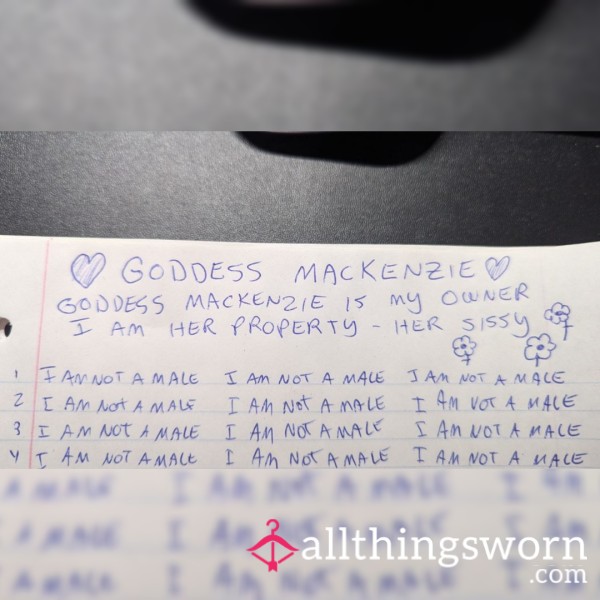 GODDESS MACKENZIE
GODDESS MACKENZIE IS MY OWNER
I AM HER PROPERTY - HER SISSY
1 I AM NOT A MALE I AM NOT A MALE I AM NOT A MALE
2 I AM NOT A MALE I AM NOT A MALE I AM NOT A MALE
3 I AM NOT A MALE I AM NOT A MALE I AM NOT A MALE
4 I AM NOT A MALE I AM NOT A MALE I AM NOT A MALE
A MALE I AM NOT A MALE I AM
A MALE
A MALE I AM NOT A MALE
allthingsworn
.com